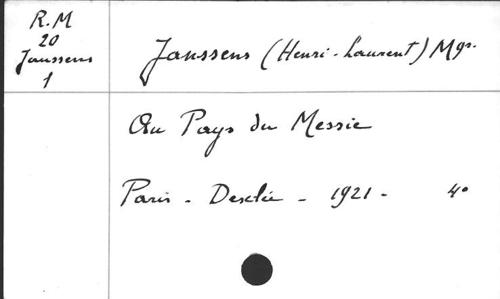 R.M
20
Janssens
1
Janssens (Henri-Laurent) Mgr.
Au Pays du Messie
Paris - Desclée - 1921 - 4°